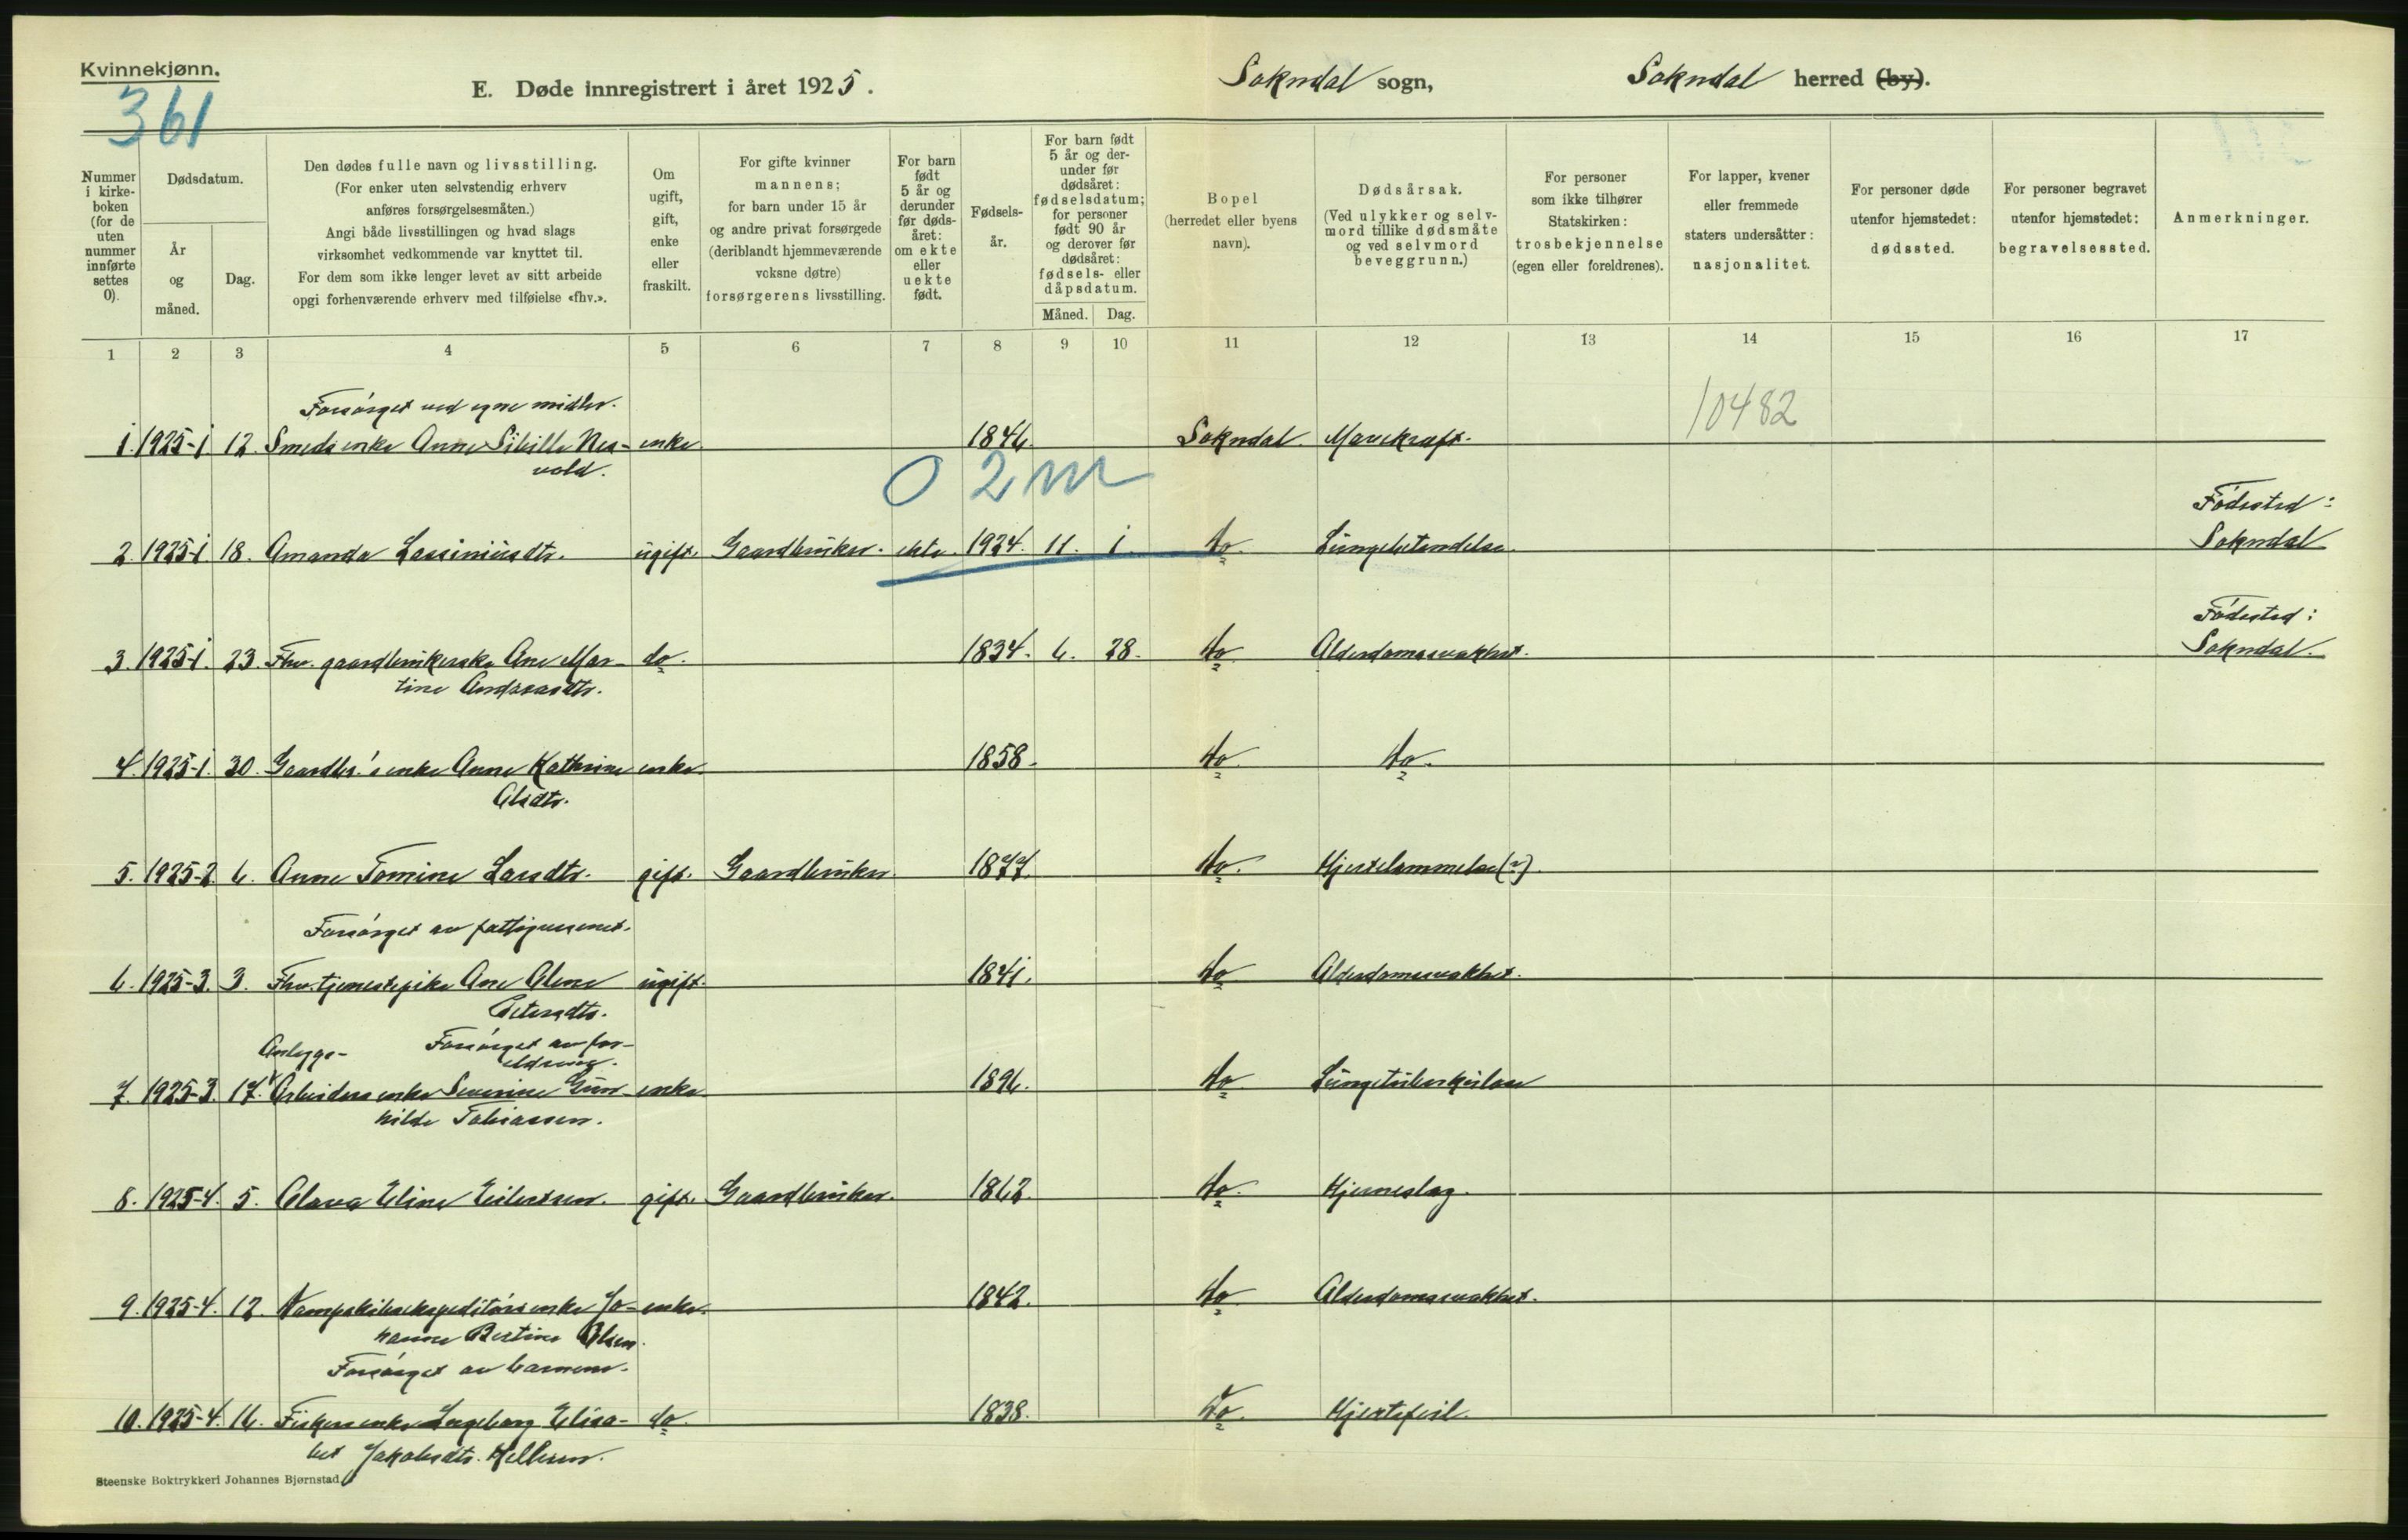 Kvinnekjønn.
361
E. Døde innregistrert i året 1925.
Sokndal sogn,
Sokndal herred (by).
Nummer i kirke-boken (for de uten nummer innførte settes 0).
Dødsdatum.
År og måned.
Dag.
Den dødes fulle navn og livsstilling.
(For enker uten selvstendig erhverv
anføres forsørgelsesmåten.)
Angi både livsstillingen og hvad slags
virksomhet vedkommende var knyttet til.
For dem som ikke lenger levet av sitt arbeide
opgi forhenværende erhverv med tilføielse «fhv.».
Om ugift, gift, enke eller fraskilt.
For gifte kvinner
mannens;
for barn under 15 år
og andre privat forsørgede
(deriblandt hjemmeværende
voksne døtre)
forsørgerens livsstilling.
For barn født 5 år og derunder før døds-året: om ekte eller uekte født.
Fødsels-år.
For barn født 5 år og der-under før dødsåret: fødselsdatum; for personer født 90 år og derover før dødsåret: fødsels- eller dåpsdatum.
Måned.
Dag.
Bopel
(herredet eller byens
navn).
Dødsårsak.
(Ved ulykker og selv-
mord tillike dødsmåte
og ved selvmord
beveggrunn.)
For personer
som ikke tilhører
Statskirken:
trosbekjennelse
(egen eller foreldrenes).
For lapper, kvener
eller fremmede
staters undersåtter:
nasjonalitet.
For personer døde
utenfor hjemstedet:
dødssted.
For personer begravet
utenfor hjemstedet:
begravelsessted.
Anmerkninger.
1 2 3 4 5 6 7 8 9 10 11 12 13 14 15 16 17
10482
Forsørget ved egne midler.
1. 1925-1 12. Smeds enke Anne Sibille Nes- enke. 1846 Sokndal Mavekræft.
vold.
0 2 m
Fødested:
2. 1925-1. 18. Amanda Lassiniusdtr. ugift. Gaardbruker. ekte. 1924. 11. 1. do. Lungebetendelse. Sokndal
Fødested:
3. 1925-1. 23. Fhv. gaardbrukerske Ane Mar- do. 1834. 6. 28. do. Alderdomssvakhet. Sokndal.
tine Andreasdtr.
4. 1925-1. 30. Gaardbr.'s enke Anne Kathrine enke. 1858. do. do.
Olsdtr.
5. 1925-2. 6. Anne Tomine Larsdtr. gift. Gaardbruker. 1877. do. Hjertelammelse (?).
Forsørget av fattigvesenet.
6. 1925-3. 3. Fhv. tjenestepike Ane Olene ugift. 1841. do. Alderdomssvakhet.
Petersdtr.
Anleggs- Forsørget av for-
eldrene.
7. 1925-3. 17. Arbeiders enke Severine Gun- enke. 1896. do. Lungetuberkulose
hilde Tobiassen.
8. 1925-4. 5. Olava Eline Eilertsen. gift. Gaardbruker. 1862. do. Hjerneslag.
9. 1925-4. 12. Dampskibsekspeditørs enke Jo- enke. 1842. do. Alderdomssvakhet.
hanne Bertine Olsen.
Forsørget av barnene.
10. 1925-4. 16. Fiskers enke Ingeborg Elisa- do. 1838. do. Hjertefeil.
bet Jakobsdtr. Hellesen.
Steenske Boktrykkeri Johannes Bjørnstad.